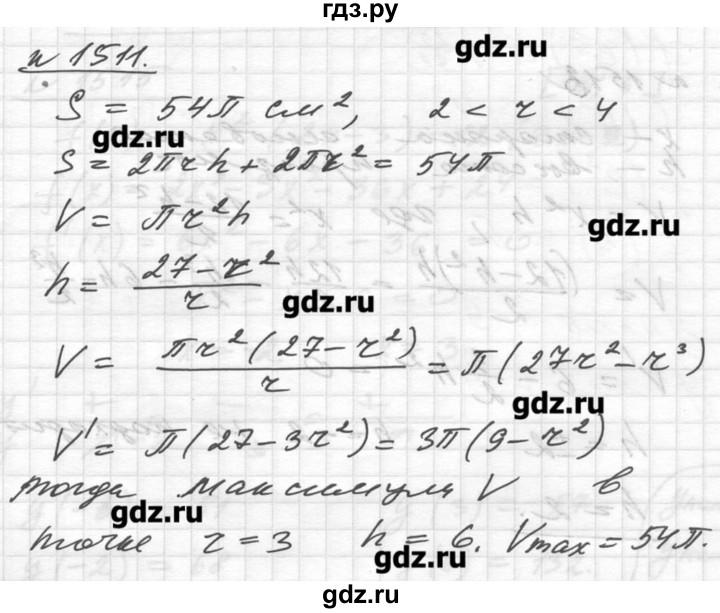 гдз.ру
gdz.ru
№ 1511.
S = 54π см², 2 < r < 4
gdz.ru
S = 2πrh + 2πr² = 54π
V = πr²h
gdz.ru
h = (27 - r²)/r
gdz.ru
V = πr²(27 - r²)/r = π(27r² - r³)
gdz.ru
V' = π(27 - 3r²) = 3π(9 - r²)
тогда максимум V в
gdz.ru
точке r = 3 h = 6. Vmax = 54π.
gdz.ru
gdz.ru